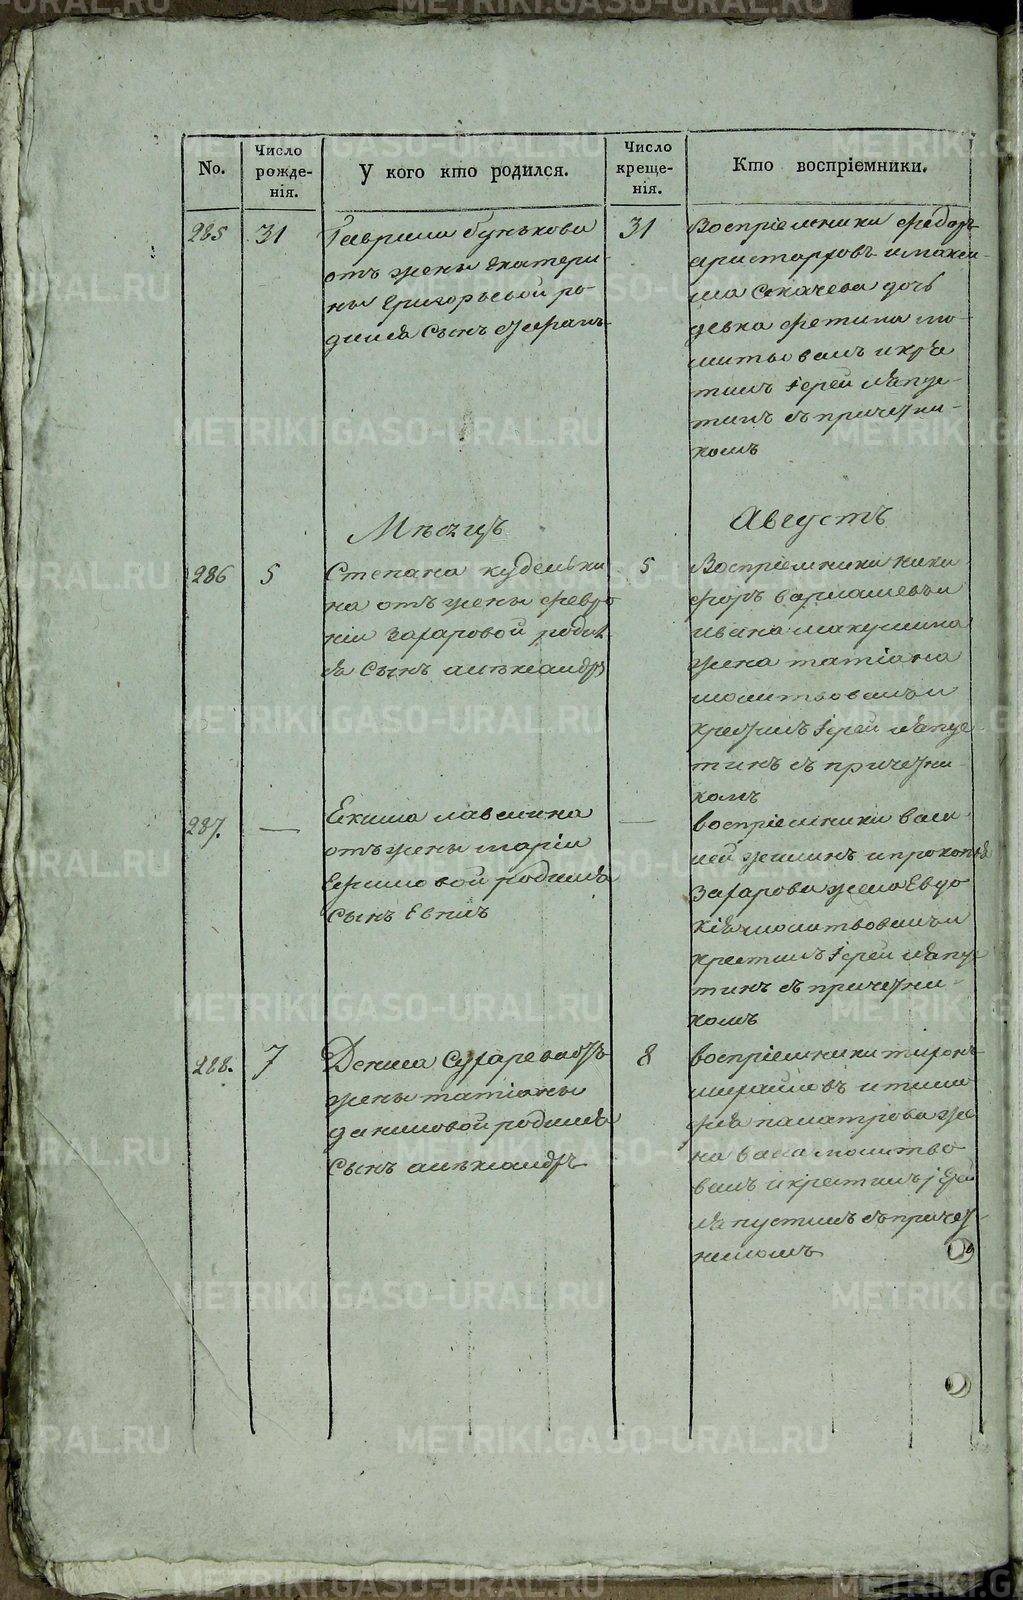 No.
Число рожде-нія.
У кого кто родился.
Число креще-нія.
Кто воспріемники.
285
31
Гаврила Бунькова
отъ жены Екатери-
ны Григорьевой ро-
дился сынъ
31
Воспріемники Федоръ
Аристарховъ и Макси-
ма Секачева дочь
девка Фетинья мо-
литвовалъ и кре-
тилъ Іерей Лапу-
тинъ съ причетни-
комъ
Мѣсяцъ
Августъ
286
5
Степана Кудельки
на отъ жены Февро
ніи Захаровой роди
ся сынъ Александръ
5
Воспріемники Ники
форъ и
Ивана Макушина
жена Татіана
молитвовалъ и
крестилъ Іерей Лапу-
тинъ съ причетни-
комъ
287.
—
Екима
отъ жены Маріи
Ефимовой родился
сынъ Евплъ
—
воспріемники Васи-
лей Жилинъ и Прокопья
Захарова жена Евдо
кія молитвовалъ и
крестилъ Іерей Лапу-
тинъ съ причетни-
комъ
288.
7
Дениса Сухарева отъ
жены Татіаны
Даниловой родился
сынъ Александръ
8
воспріемники Тихонъ
и Тимо
фея жe
на молитво
валъ и крестилъ Іерей
Лапустинъ съ причет-
никомъ
METRIKI.GASO-URAL.RU